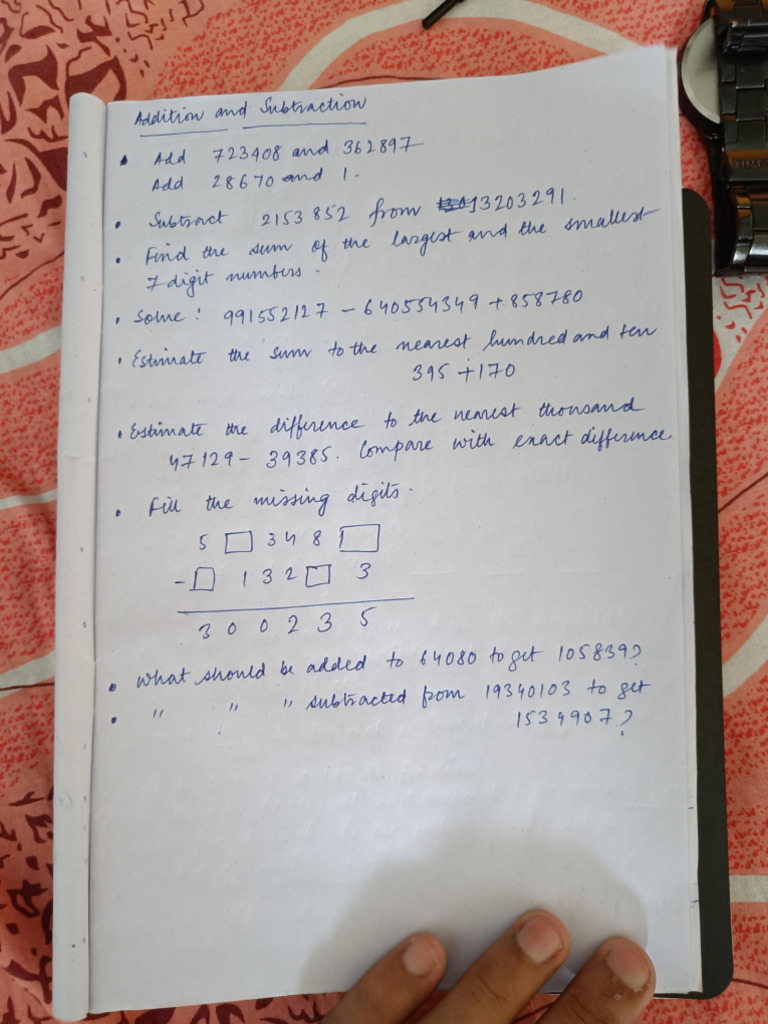 Addition and Subtraction
• Add 723408 and 362897
Add 28670 and 1.
• Subtract 2153852 from 13203291.
• Find the sum of the largest and the smallest
7 digit numbers.
• Solve: 991552127 - 640554349 + 858780
• Estimate the sum to the nearest hundred and ten
395 + 170
• Estimate the difference to the nearest thousand
47129 - 39385. Compare with exact difference.
• Fill the missing digits.
5 □ 3 4 8 □
- □ 1 3 2 □ 3
3 0 0 2 3 5
• What should be added to 64080 to get 105839?
• " " " subtracted from 19340103 to get
1534907?